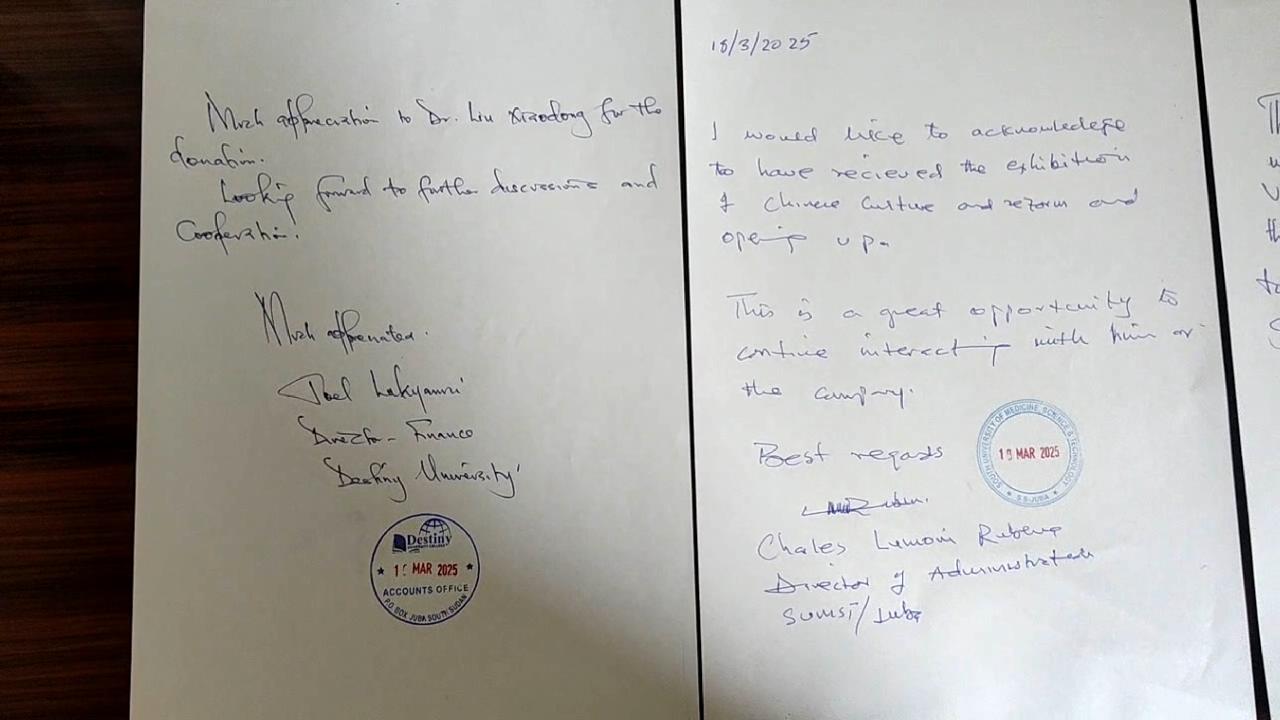 Much appreciation to Dr. Liu Xiaodong for the
donation.
Looking forward to further discussions and
Cooperation.
Much appreciated.
Director - Finance
Destiny University
Destiny
MAR 2025
ACCOUNTS OFFICE
P.O. BOX JUBA SOUTH SUDAN
18/3/2025
I would like to acknowledege
to have recieved the exhibition
of Chinese Culture and reform and
opening up.
This is a great opportunity to
continue interacting with him or
the company.
Best regards
SOUTH UNIVERSITY OF MEDICINE, SCIENCE & TECHNOLOGY
MAR 2025
S.S-JUBA
Chales
Director of Administration
/Juba